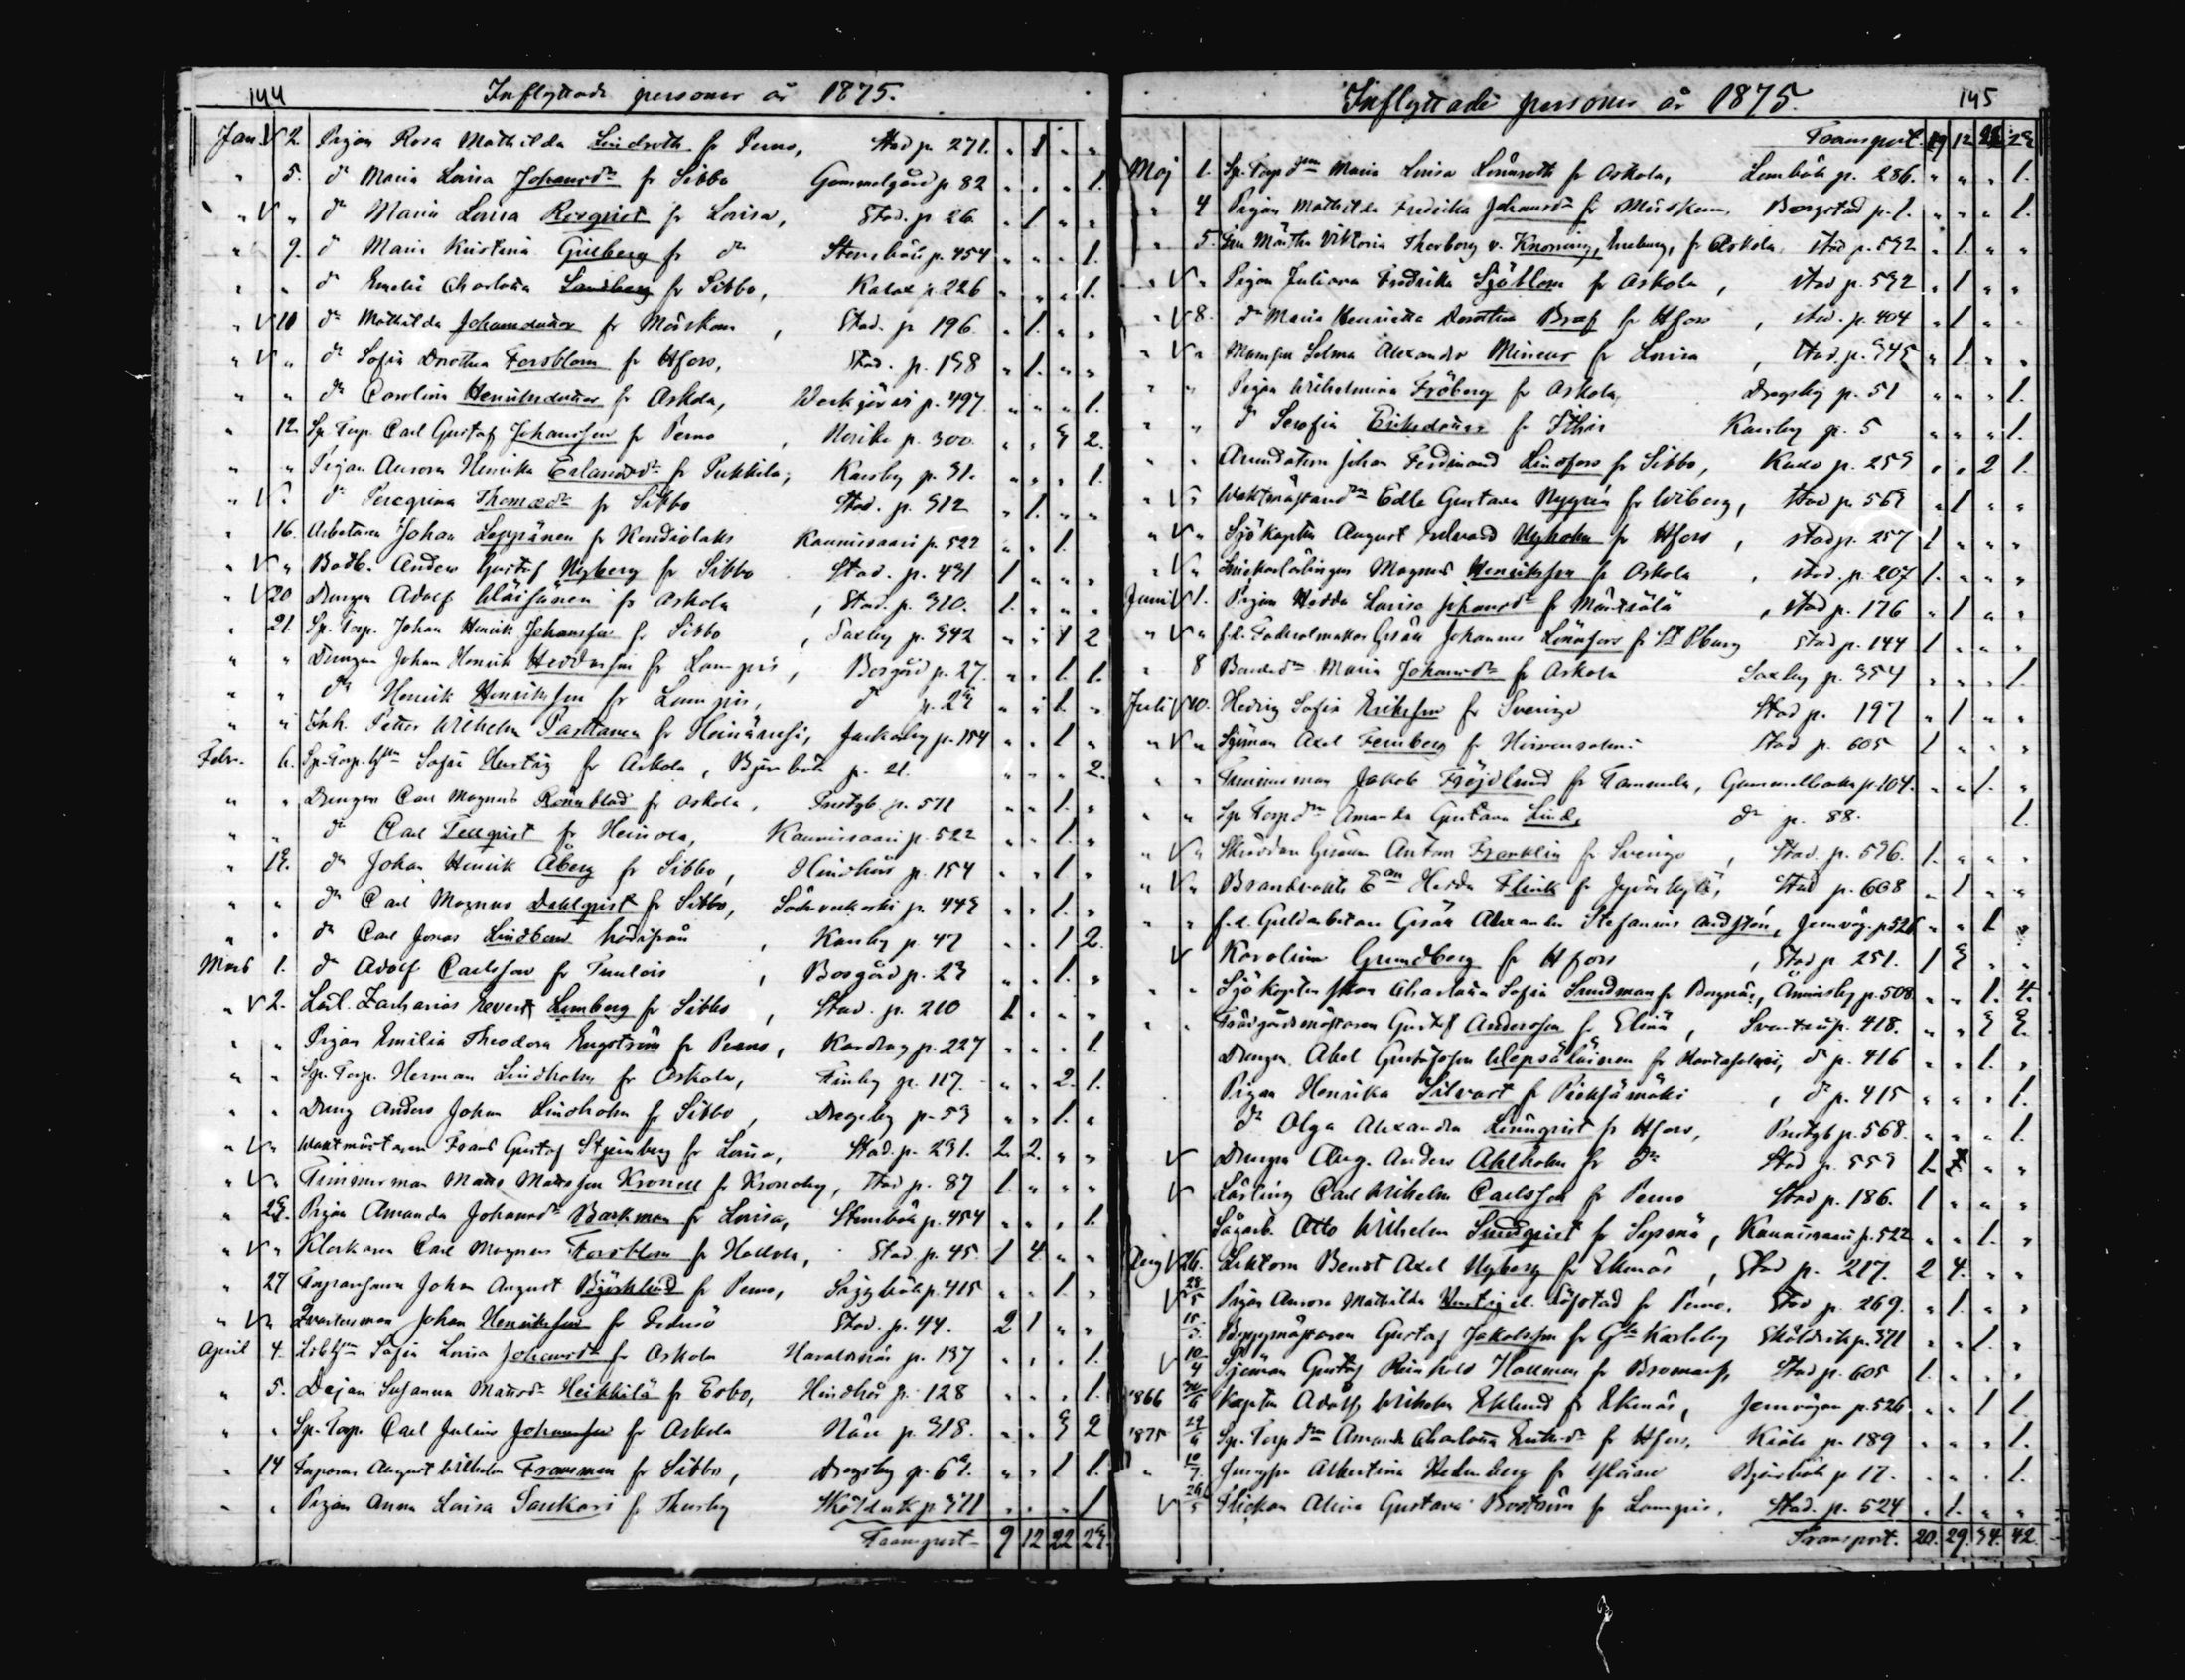 144 Inflyttade personer år 1875.
Jan V 2. Pigan Rosa Mathilda Lindroth fr Perno, Stad p. 271. " 1 " "
" 5. dº Maria Lovisa Johansdr fr Sibbo Gammelgård p. 82 " " " 1.
" V " dº Maria Lovisa Rosqvist fr Lovisa, Stad. p. 26. " 1. " "
" 9. dº Maria Kristina Gillberg fr dº Stensböle p. 454 " " " 1.
" " dº Emelie Charlotta Sandberg fr Sibbo, Kalax p. 226 " " " 1.
" V 10 dº Mathilda Johansdotter fr Mörskom, Stad. p. 196. " 1. " "
" V " dº Sofia Dorothea Forsblom fr Hfors, Stad. p. 198 " 1. " "
" " dº Carolina Henriksdotter fr Askola, Werkjärvi p. 497. " " " 1.
" 12. Sp. Torp. Carl Gustaf Johansson fr Perno, Norike p. 300. " " 3 2.
" " Pigan Aurora Henrika Erlandsdr fr Pukkila, Karsby p. 31. " " " 1.
" V " dº Peregrina Thomasdr fr Sibbo Stad. p. 312 " 1. " "
" 16. Arbetaren Johan Leppänen fr Kondiolaks Kaunissaari p. 522 " " 1.
" V " Bodb. Anders Gustaf Nyberg fr Sibbo Stad. p. 431 1 " " "
" V 20 Drengen Adolf Wäisänen fr Askola, Stad. p. 310. 1. " " "
" 21. Sp. Torp. Johan Henrik Johansson fr Sibbo, Saxby p. 342 " " 1 2
" " Drengen Johan Henrik Heddersson fr Lampis, Borgård p. 27. " " 1. 1.
" " dº Henrik Henriksson fr Lampis, dº p. 23 " " 1. "
" " Inh. Petter Wilhelm Partanen fr Heinävesi, Jackarby p. 154 " " 1 "
Febr. 6. Sp. Torp. Sofia Hurtig fr Askola, Bjurböle p. 21. " " " 2.
" " Drengen Carl Magnus Rönnblad fr Askola, Prestgb. p. 571 " " 1. "
" " dº Carl Tellqvist fr Heinola, Kaunissaari p. 522 " " 1. "
" 19. dº Johan Henrik Åberg fr Sibbo, Hindhår p. 154 " " 1 "
" " dº Carl Magnus Dahlqvist fr Sibbo, Söderveckoski p. 443 " " 1. "
" " dº Carl Jonas Lindbom härifrån, Karsby p. 47 " " 1 2.
Mars 1. dº Adolf Carlsson fr Tuulois, Borgård p. 23 " " 1. "
" V 2. Lärl. Zacharias Evert Lemberg fr Sibbo, Stad. p. 210 1. " " "
" " Pigan Emilia Theodora Engström fr Perno, Kardrag p. 227 " " " 1.
" " Sp. Torp. Herman Lindholm fr Askola, Finby p. 117. " " 2. 1.
" " Dreng Anders Johan Lindholm fr Sibbo, Dregsby p. 53 " " 1. "
" V " Waktmästaren Frans Gustaf Stjernberg fr Lovisa, Stad. p. 231. 2 2. " "
" V " Timmerman Matts Mattsson Kronell fr Kronoby, Stad p. 87 1. " " "
" 23. Pigan Amanda Johansdr Backman fr Lovisa, Stensböle p. 454 " " " 1.
" V " Klockaren Carl Magnus Forsblom fr Hollola, Stad. p. 45. 1 4. " "
" 27 Torparsonen Johan August Björklund fr Perno, Säggböle p. 415 " " 1. "
" V " Qvartersman Johan Henriksson fr Degerö Stad. p. 44. 2 1 " "
April 4. Sofia Lovisa Johansdr fr Askola Haraldsnäs p. 137 " " " 1.
" 5. Dejan Susanna Mattsdr Heikkilä fr Esbo, Hindhår p. 128 " " " 1.
" " Sp. Torp. Carl Julius Johansson fr Askola Näse p. 318. " " 3 2
" 14 Torparen August Wilhelm Fransman fr Sibbo, Dregsby p. 63. " " 1 1.
" " Pigan Anna Lovisa Sankari fr Thusby Sköldvik p. 371 " " " 1
Transport 9 12 22 23.
Inflyttade personer år 1875. 145
Transport. 9 12 22 23
Maj 1. Sp. Torp dm Maria Lovisa Lönnroth fr Askola, Lemböle p. 286. " " " 1.
" 4 Pigan Mathilda Fredrika Johansdr fr Mörskom, Borgstad p. 1. " " " 1.
" 5. Märtha Viktoria Thorborg v. Knorring, fr Askola, Stad p. 592 " 1. " "
" V " Pigan Juliana Fredrika Sjöblom fr Askola, Stad p. 592 " 1 " "
" V 8. dº Maria Henrietta Dorothea Bref fr Hfors, Stad. p. 404 " 1 " "
" V " Mamsell Selma Alexandra Mineur fr Lovisa, Stad. p. 345 " 1. " "
" " Pigan Wilhelmina Fröberg fr Askola, Dregsby p. 51 " " " 1.
" " dº Serafia Eriksdotter fr Sthis Karsby p. 5 " " " 1.
" " Arrendatorn Johan Ferdinand Lindfors fr Sibbo, p. 253 " " 2 1.
" V " Edla Gustava Nygrén fr Wiborg, Stad p. 563 " 1 " "
" V " Sjökapten August Edvard Nyholm fr Hfors, Stad p. 257 1 " " "
" V " Snickarlärlingen Magnus Henriksson fr Askola, Stad. p. 207 1. " " "
Juni V 1. Pigan Hedda Lovisa Johansdr fr Mäntsälä, Stad p. 176 " 1 " "
" V " f.d. Foderalmakar Gesäll Johannes Lönnfors fr St Pburg Stad p. 144 1 " " "
" 8 Bonded. Maria Johansdr fr Askola Saxby p. 354 " " " 1.
Juli V 10. Hedvig Sofia Eriksson fr Sverige Stad p. 197 " 1 " "
" V " Sjöman Axel Fernberg fr Hirvensalmi Stad p. 605 1 " " "
" " Timmerman Jakob Fröjdlund fr Tammela, Gammelbacka p. 104. " " 1. "
" " Sp. Torp dm Amanda Gustava Lind, dº p. 88. 1.
" V " Skräddar Gesällen Anton Franklin fr Sverige, Stad. p. 596. 1. " " "
" V " Brandvakts Hedda Flink fr Jyväskylä, Stad p. 608 " 1 " "
" " f.d. Guldarbetare Gesäll Alexander Stefanius Andstén, Jernväg. p. 526 " " 1 "
V Karolina Grundberg fr Hfors, Stad p. 251. 1 3 " "
" " Sjökapten Charlotta Sofia Sundman fr Borgnäs, p. 508. " " 1. 4.
" " Trädgårdsmästaren Gustaf Andersson fr Elimä, Svartså p. 418. " " 3 3.
Drengen Abel Gustafsson Wepsäläinen fr Rantasalmi, dº p. 416 " " 1. "
Pigan Henrika Silvast fr Pieksämäki, dº p. 415 " " " 1.
dº Olga Alexandra Lönnqvist fr Hfors, Prestgb p. 568. " " " 1.
V Drengen Aug. Anders Ahlholm fr dº Stad p. 553 1. " "
V Lärling Carl Wilhelm Carlsson fr Perno Stad p. 186. 1 " " "
Sågarb. Otto Wilhelm Sundqvist fr Sippola, Kaunissaari p. 522 " " 1. "
Aug V 26. Lektorn Bengt Axel Nyberg fr Ekenäs, Stad p. 217. 2 4. " "
V 28/5 Pigan Aurora Mathilda Hurtig el. Löfstad fr Perno, Stad p. 269. " 1. " "
15/5. Byggmästaren Gustaf Jakobsson fr Gla Karleby Sköldvik p. 371 " " 1. "
V 10/4 Sjöman Gustaf Reinhold Hallman fr Bromarf, Stad p. 605 1. " " "
1866 Kapten Adolf Wilhelm Eklund fr Ekenäs, Jernvägen p. 526. " " 1 1.
1875 29/4 Sp. Torp dm Amanda Charlotta fr Hfors, Kiala p. 189 " " " 1.
" 10/7. Jungfru Albertina Hedenberg fr Bjurböle p 17. " " " 1.
V 26/5 Flickan Alina Gustava Boström fr Lampis, Stad. p. 524 " 1. " "
Transport. 20. 29. 34. 42.